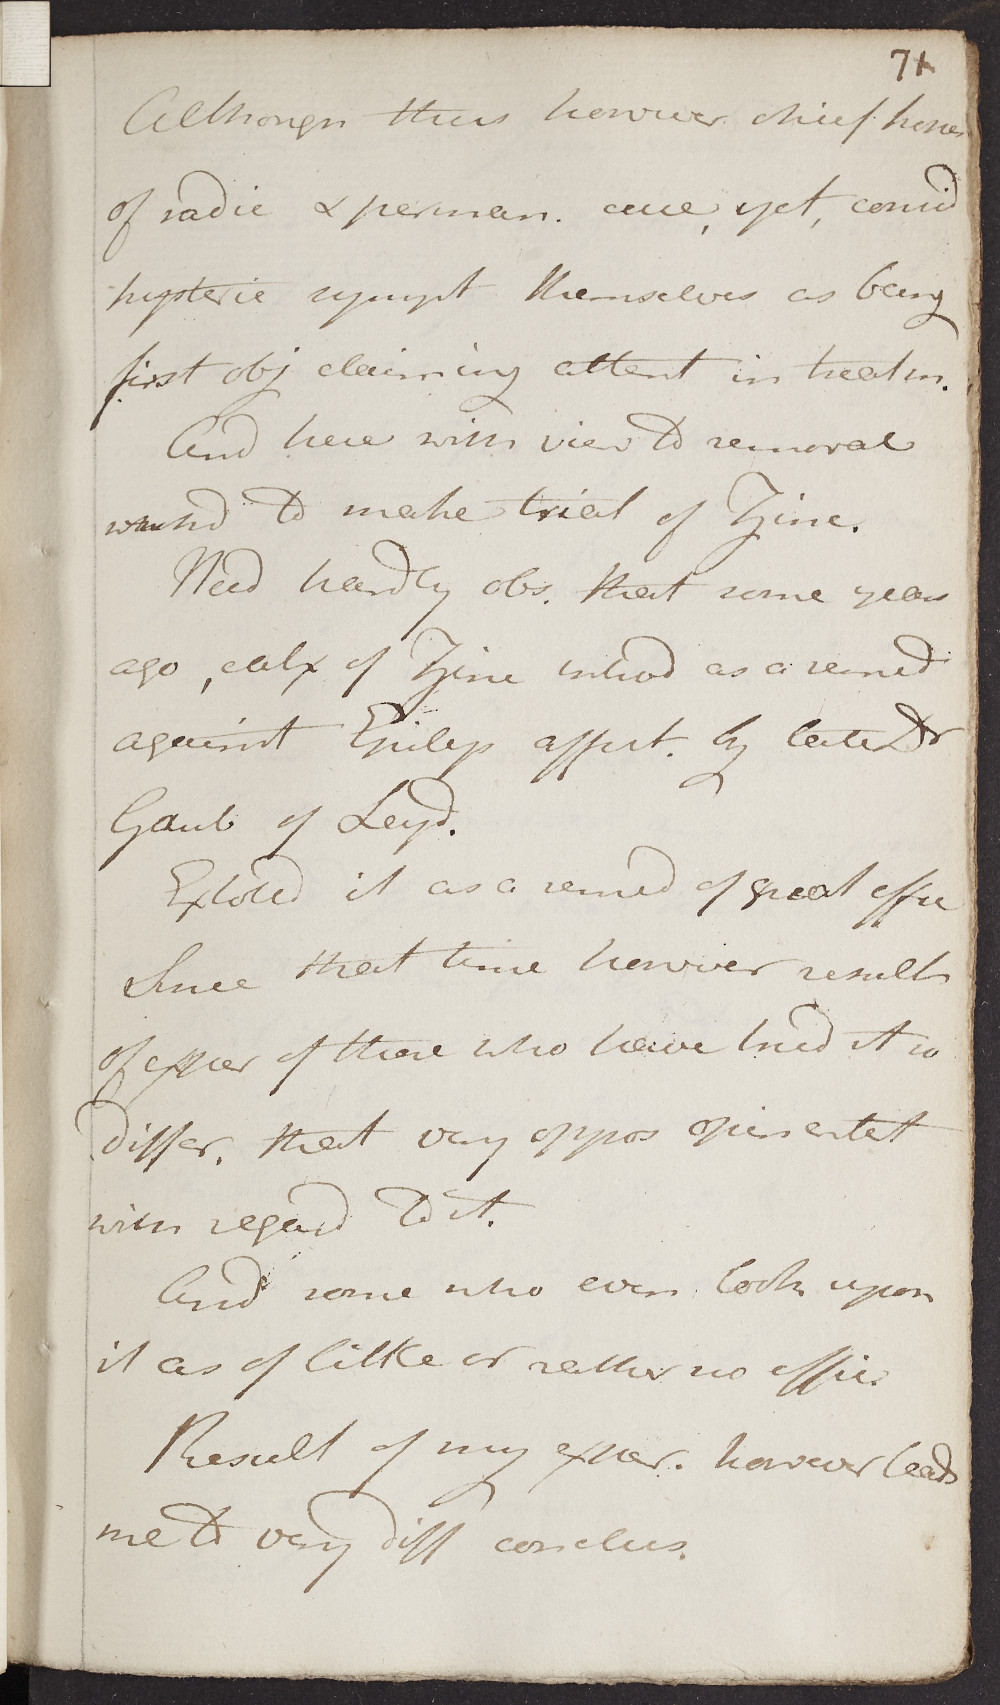 71
Although thus however chief hopes
of radic & perman. cure, yet, consid
hysteric sympt themselves as being
first obj claiming attent in treatm.
And here with view to removal
wishd to make trial of Zinc.
Need hardly obs. that some years
ago, calx of Zinc introd as a remed
against Epilep affect. by late Dr
Gaub of Leyd.
Extolled it as a remed of great effic
Since that time however results
of exper of those who have tried it so
differ. that very oppos opin entert
with regard to it.
And some who even look upon
it as of little or rather no effic.
Result of my exper. however leads
me to very diff conclus.